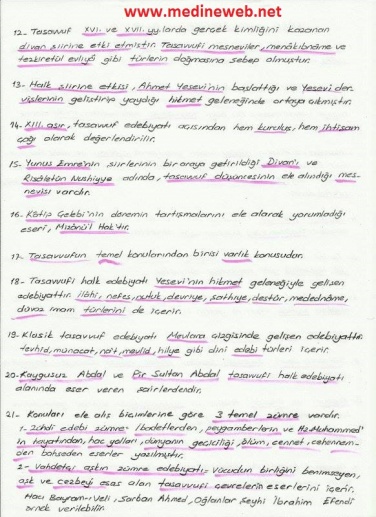 www.medineweb.net
12- Tasavvuf XVI. ve XVII. yy.larda gerçek kimliğini kazanan
divan şiirine etki etmiştir. Tasavvufi mesneviler, menâkıbnâme ve
tezkiretül evliyâ gibi türlerin doğmasına sebep olmuştur.
13- Halk şiirine etkisi, Ahmet Yesevi'nin başlattığı ve Yesevi der-
vişlerinin geliştirip yaydığı hikmet geleneğinde ortaya çıkmıştır.
14- XIII. asır, tasavvuf edebiyatı açısından hem kuruluş, hem ihtişam
çağı olarak değerlendirilir.
15- Yunus Emre'nin şiirlerinin bir araya getirildiği Divan'ı ve
Risâletün Nushiyye adında, tasavvuf düşüncesinin ele alındığı mes-
nevisi vardır.
16- Kâtip Çelebi'nin dönemin tartışmalarını ele alarak yorumladığı
eseri, Mizânü'l Hak'tır.
17- Tasavvufun temel konularından birisi varlık konusudur.
18- Tasavvufi halk edebiyatı Yesevi'nin hikmet geleneğiyle gelişen
edebiyattır. ilâhi, nefes, nutuk, devriye, şathiye, destûr, medednâme,
düvaz imam türlerini de içerir.
19- Klasik tasavvuf edebiyatı Mevlana çizgisinde gelişen edebiyattır.
tevhid, münacat, na't, mevlid, hilye gibi dini edebi türleri içerir.
20- Kaygusuz Abdal ve Pir Sultan Abdal tasavvufi halk edebiyatı
alanında eser veren şairlerdendir.
21- Konuları ele alış biçimlerine göre 3 temel zümre vardır.
1- Zühdi edebi zümre: İbadetlerden, peygamberlerin ve Hz. Muhammed'
in hayatından, hac yolları, dünyanın geçiciliği, ölüm, cennet, cehennem-
den bahseden eserler yazılmıştır.
2- Vahdetçi aşkın zümre edebiyatı: Vücudun birliğini benimseyen,
aşk ve cezbeyi esas alan tasavvufi çevrelerin eserlerini içerir.
Hacı Bayram-ı Veli, Sarban Ahmed, Oğlanlar Şeyhi İbrahim Efendi
örnek verilebilir.